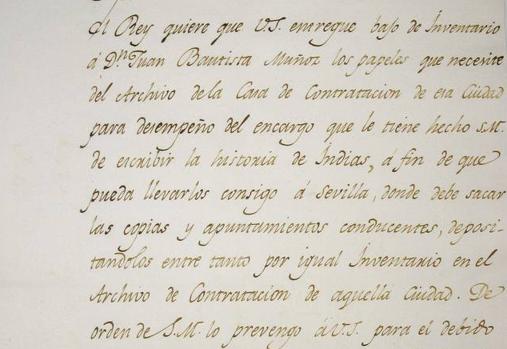 El Rey quiere que V.S. entregue bajo de Inventario
á Dn. Juan Bautista Muñoz los papeles que necesite
del Archivo de la Casa de Contratacion de esa Ciudad
para desempeño del encargo que le tiene hecho S.M.
de escribir la historia de Indias, á fin de que
pueda llevarlos consigo á Sevilla, donde debe sacar
las copias y apuntamientos conducentes, deposi-
tandolos entre tanto por igual Inventario en el
Archivo de Contratacion de aquella Ciudad. De
orden de S.M. lo prevengo á V.S. para el debido